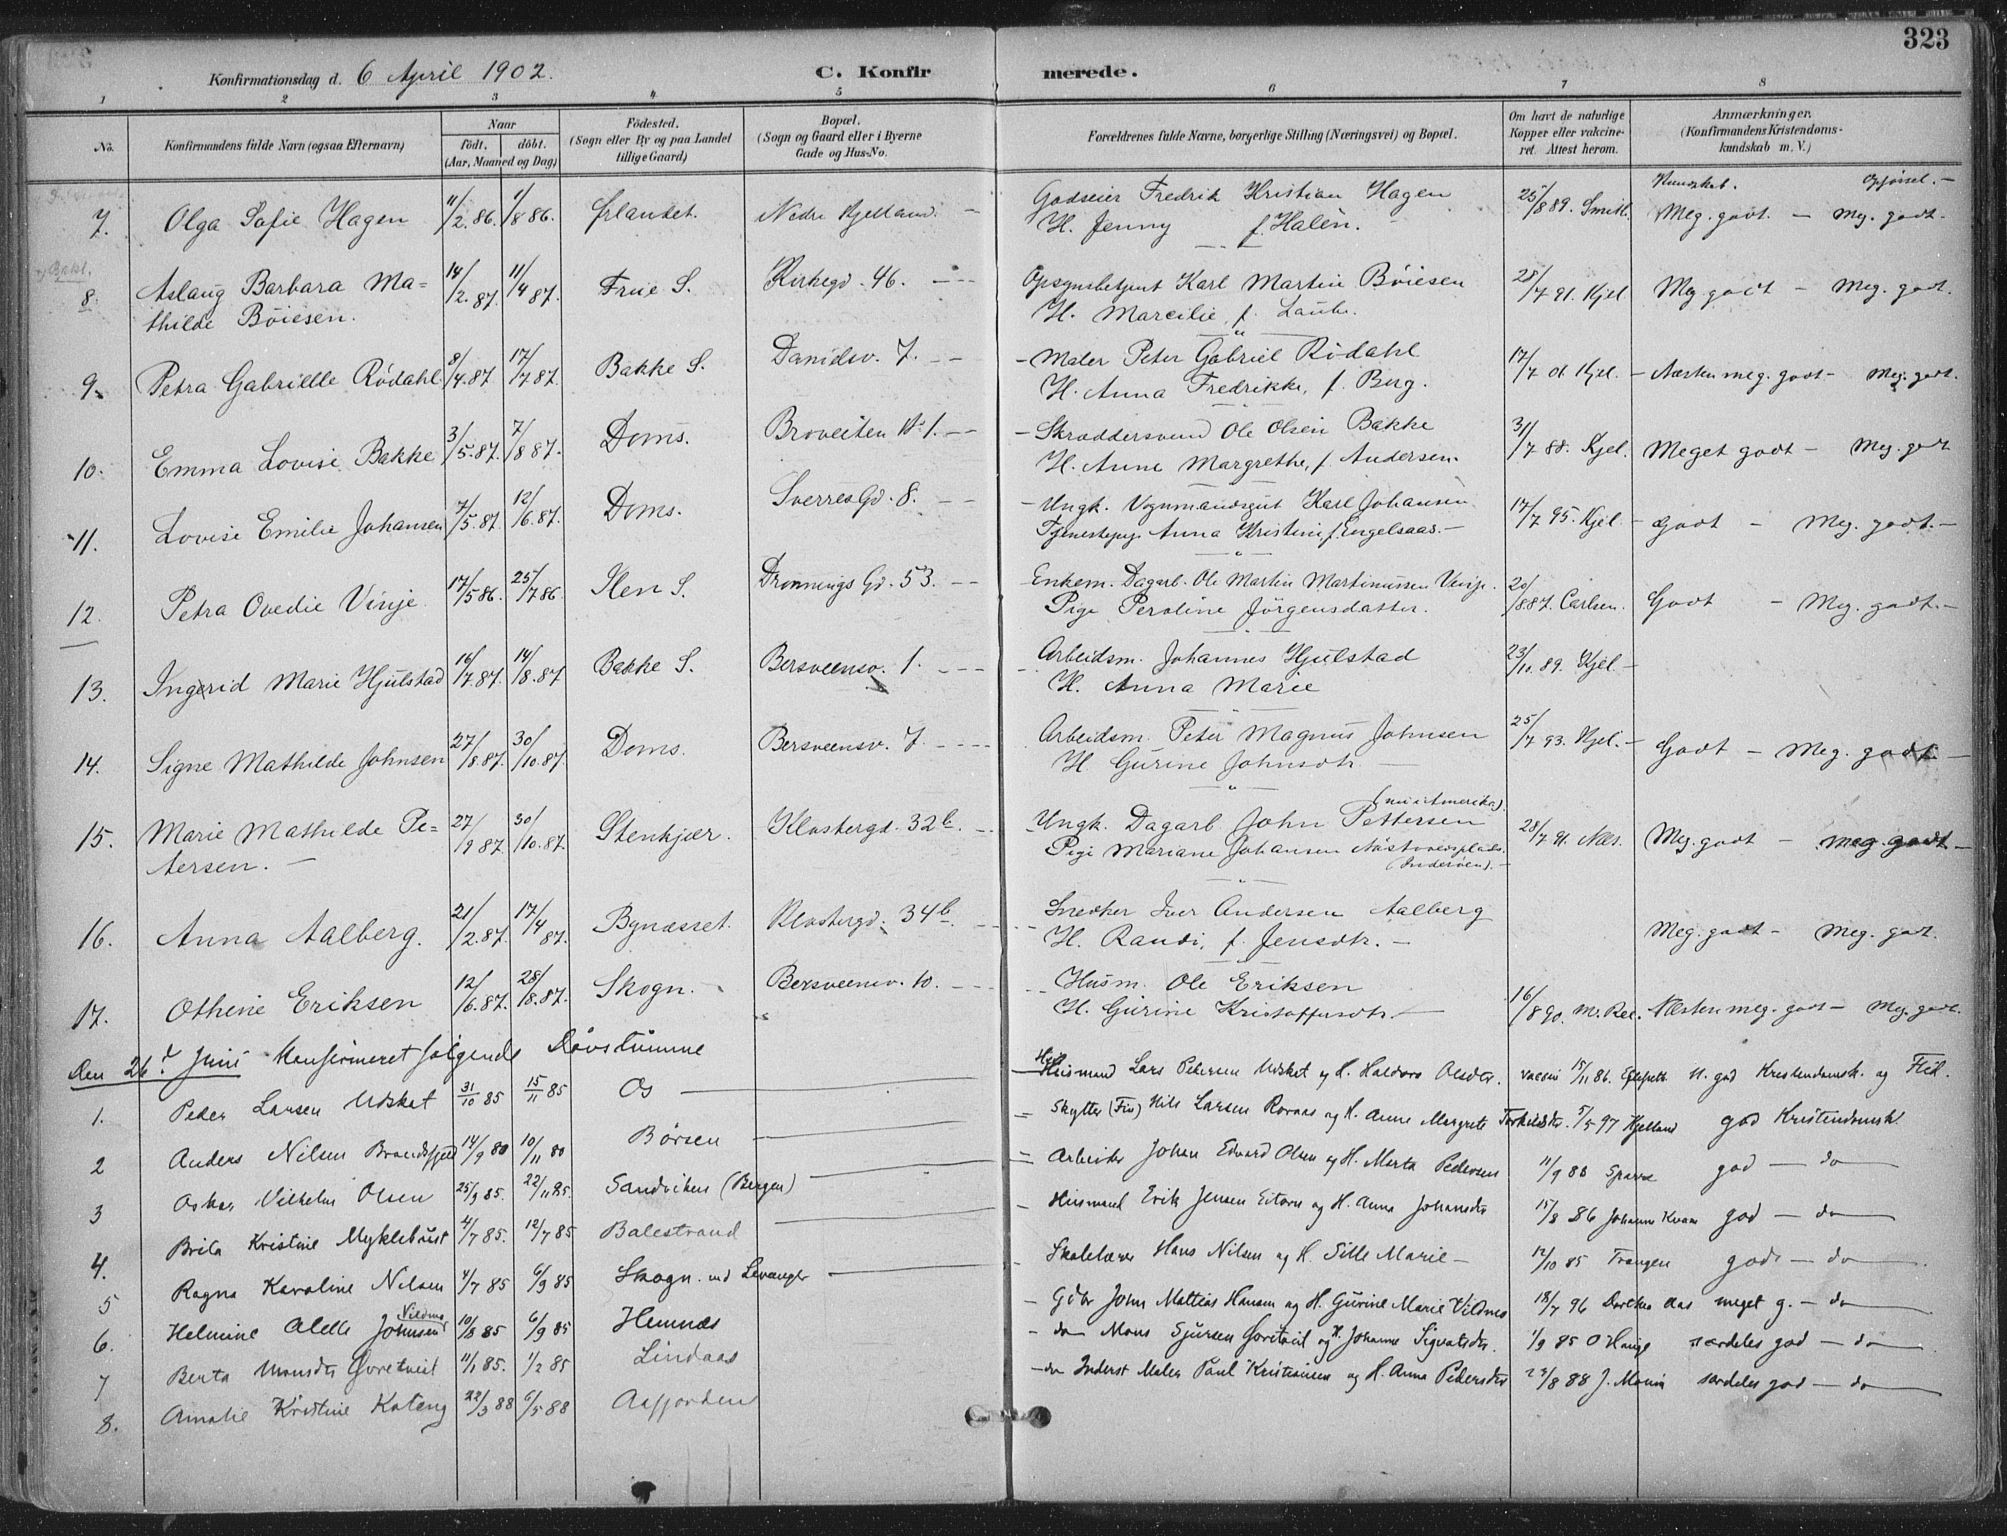 323
Konfirmationsdag d. 6 April 1902. C. Konfir merede.
1 2 3 4 5 6 7 8
No. Konfirmandens fulde Navn (ogsaa Efternavn) Naar født. døbt. (Aar, Maaned og Dag) Fødested. (Sogn eller By og paa Landet tillige Gaard) Bopæl. (Sogn og Gaard eller i Byerne Gade og Hus-No. Forældrenes fulde Navne, borgerlige Stilling (Næringsvei) og Bopæl. Om havt de naturlige Kopper eller vakcineret. Attest herom. Anmærkninger. (Konfirmandens Kristendomskundskab m. V.)
Kundskab. Opførsel.
7. Olga Sofie Hagen 11/2.86. 1/8 86. Ørlandet. Nedre Kjelland. Godseier Fredrik Kristian Hagen 25/8 89. Smith. Meg. godt. - Meg. godt.
H. Jenny f. Halèn.
8. Aslaug Barbara Ma= 14/2.87. 11/4 87. Frue S. Kirkegd. 46. Opsynsbetjent Karl Martin Böiesen 28/7 91. Kjel. Meg godt - Meg. godt.
thilde Böiesen. H. Marcilie, f. Laube.
9. Petra Gabrielle Rödahl 8/4.87. 17/7 87. Bakke S. Danielsv. 7. - Maler Peter Gabriel Rödahl 17/7 01 Kjel. - Næsten meg. godt - Meg. godt.
H. Anna Fredrikke, f. Berg.
10. Emma Lovise Bakke 3/5.87. 7/8 87. Doms. Broveiten No 1. - Skræddersvend Ole Olsen Bakke 31/7 88. Kjel. Meget godt - Meg. godt
H. Anne Margrethe, f. Andersen.
11. Lovise Emilie Johansen 7/5.87. 12/6.87. Doms. Sverres Gd. 8. - Ungk. Vognmandsgut Karl Johansen 17/7 95. Kjel - Godt - Meg. godt. -
Tjenestepige Anna Kristine f. Engelsaas. -
12. Petra Ovedie Vinje. 17/5 86. 25/7 86. Ilen S. Dronnings Gd. 53. - Enkem. Dagarb. Ole Martin Martinussen Vinje. 20/8 87. Carlsen. Godt - Meg. godt. -
Pige Peroline Jörgensdatter.
13. Ingerid Marie Hjulstad 16/7.87. 14/8.87 Bakke S. Bersveensv. 1. - Arbeidsm. Johannes Hjulstad 23/10. 89. Kjel -
H. Anna Marie
14. Signe Mathilde Johnsen 27/8.87. 30/10.87. Doms. Bersveensv. 7. - Arbeidsm. Peter Magnus Johnsen 25/7 93. Kjel. - Godt - Meg. godt -
H. Gurine Johnsdtr. -
15. Marie Mathilde Pe= 27/9 87. 30/10.87. Stenkjær. Klostergd. 32b. - Ungk. Dagarb John Pettersen (nu i Amerika). 28/7 91. Næs. Meg. godt - Meg. godt -
tersen. - Pige Mariane Johansen (Inderøen). -
16. Anna Aalberg. 21/2.87. 17/4 87. Bynæsset. Klostergd. 34b. Snedker Iver Andersen Aalberg Meg. godt - Meg. godt.
H. Randi, f. Jensdtr. -
17. Othene Eriksen 12/6.87. 28/8.87. Skogn. Bersveensv. 10. - Husm. Ole Eriksen 16/8 90. Næsten meg. godt - Meg. godt.
H. Gurine Kristoffersdtr. -
Den 26. Juni Konfirmeret følgende Døvstumme
1. Peder Larsen Udsket 31/10 85 15/11 85 Os Husmand Lars Pedersen Udsket og H. Haldora Olsdtr. vaccin 15/11 86. M. god Kristendomsk. og Flid.
2 Anders Nilsen 14/9 80 10/11 80 Børsen Skytter (Fin) Nils Larsen og H. Anne Margrete Torkildsdtr. 5/5 97 Kjelland god Kristendomsk.
3 Oskar Vilhelm Olsen 25/9 85. 22/11 85. Sandviken (Bergen) Arbeider Johan Edvard Olsen og H. Marta Pedersen 11/9 86 Sparre god - do
4. Brita Kristine Myklebust 4/7 85. 12/7 85 Balestrand Husmand Erik Jensen og H. Anna Johansdtr 15/8 86 Johannes Kvam god - do
5 Ragna Karoline Nilsen 4/7 85 6/9 85 Skogn ved Levanger Skolelærer Hans Nilsen og H. Sille Marie - 12/10 85 Trangen god - do
6. Helmine Alette Johnsen Vildmo 10/8 85 6/9 85 Hemnæs - Gdbr John Mattias Hansen og H. Gurine Marie Vildmo 18/7 96 Dorthea Aas meget g. - do
7 Berta Monsdtr Gvretveit 11/1 85. 1/2 85 Lindaas - do Mons Sjursen Gvretveit og H. Johanne Sigvatsdtr. 1/9 85 O Hauge særdeles god - do
8. Amalie Kristine Koteng 22/3 88 6/5 88 Aafjorden - do Inderst Maler Paul Kristiansen og H. Anna Pedersdtr 23/8 88 J. Monin særdeles god - do